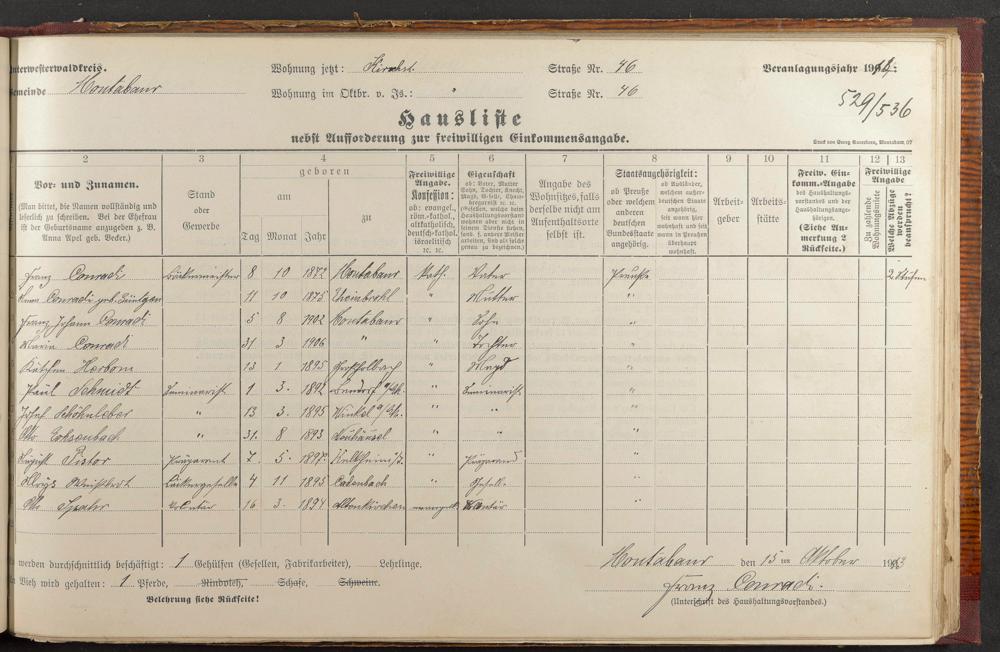 nterwesterwaldkreis. Wohnung jetzt: Kirchst. Straße Nr. 46 Veranlagungsjahr 1914:
emeinde Montabaur Wohnung im Oktbr. v. Js.: " Straße Nr. 46
529/536
Hausliste
nebst Aufforderung zur freiwilligen Einkommensangabe.
Druck von Georg Sauerborn, Montabaur. 07
2 3 4 5 6 7 8 9 10 11 12 13
Vor- und Zunamen.
(Man bittet, die Namen vollständig und
leserlich zu schreiben. Bei der Ehefrau
ist der Geburtsname anzugeben z. B.
Anna Apel geb. Becker.)
Stand
oder
Gewerbe
geboren
am
zu
Tag Monat Jahr
Freiwillige
Angabe.
Konfession:
ob: evangel.,
röm.-kathol.,
altkatholisch,
deutsch-kathol.
israelitisch
ec. ec.
Eigenschaft
ob: Vater, Mutter
Sohn, Tochter, Knecht,
Angabe des
Wohnsitzes, falls
derselbe nicht am
Aufenthaltsorte
selbst ist.
Staatsangehörigkeit:
ob Preuße
oder welchem
anderen
deutschen
Bundesstaate
angehörig.
ob Ausländer,
welchem außer-
deutschen Staate
angehörig,
seit wann hier
wohnhaft und seit
wann in Preußen
überhaupt
wohnhaft.
Arbeit-
geber
Arbeits-
stätte
Freiw. Ein-
komm.-Angabe
des Haushaltungs-
vorstandes und der
Haushaltungsange-
hörigen.
(Siehe An-
merkung 2
Rückseite.)
Freiwillige
Angabe
Zu zahlende
Wohnungsmiete
Welche Abzüge
werden
beansprucht?
Franz Conradi Bäckermeister 8 10 1872 Montabaur Kath. Vater Preuße 2 Stufen
Conradi geb. 11 10 1875 " Mutter "
Franz Johann Conradi 5 8 1902 Montabaur " Sohn "
Maria Conradi 31 3 1906 " " Tochter "
Käthchen Herborn 13 1 1895 " Magd "
Paul Schmidt Seminarist 1 3. 1892 Bendorf a/Rh. " Seminarist "
Josef Schöhnleber " 13 3. 1895 Winkel a/Rh. " " "
Otto " 31. 8 1893 Neuhäusel " " "
August Pistor Präparand 7. 5. 1897. " Präparand "
Bäckergeselle 4 11 1895 Cadenbach " Geselle "
Otto Volontär 16 3. 1894 Altenkirchen evangel. Volontär "
werden durchschnittlich beschäftigt: 1 Gehülfen (Gesellen, Fabrikarbeiter), Lehrlinge.
Vieh wird gehalten: 1 Pferde, Rindvieh, Schafe, Schweine.
Belehrung siehe Rückseite!
Montabaur den 15 ten Oktober 1913
Franz Conradi.
(Unterschrift des Haushaltungsvorstandes.)